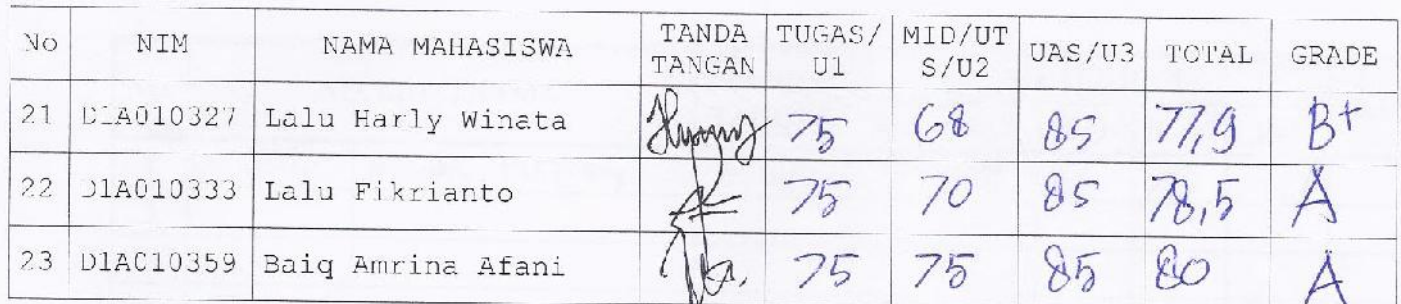 No NIM NAMA MAHASISWA TANDA TANGAN TUGAS/U1 MID/UTS/U2 UAS/U3 TOTAL GRADE
21 D1A010327 Lalu Harly Winata 75 68 85 77,9 B+
22 D1A010333 Lalu Fikrianto 75 70 85 78,5 A
23 D1A010359 Baiq Amrina Afani 75 75 85 80 A